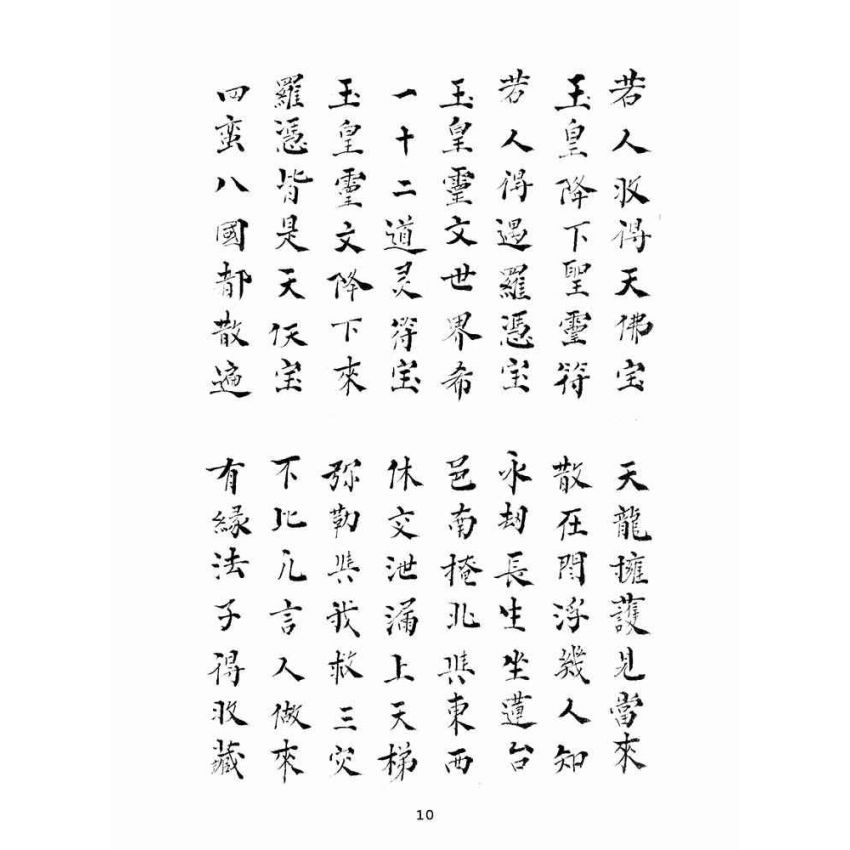 若人收得天佛宝 天龍擁護見當來
玉皇降下聖靈符 散在閻浮幾人知
若人得遇羅憑宝 永劫長生坐蓮台
玉皇靈文世界希 邑南掩北與東西
一十二道灵符宝 休交泄漏上天梯
玉皇靈文降下來 弥勒與我救三灾
羅憑皆是天仸宝 不比凡言人做來
四蛮八國都散遍 有緣法子得收藏
10